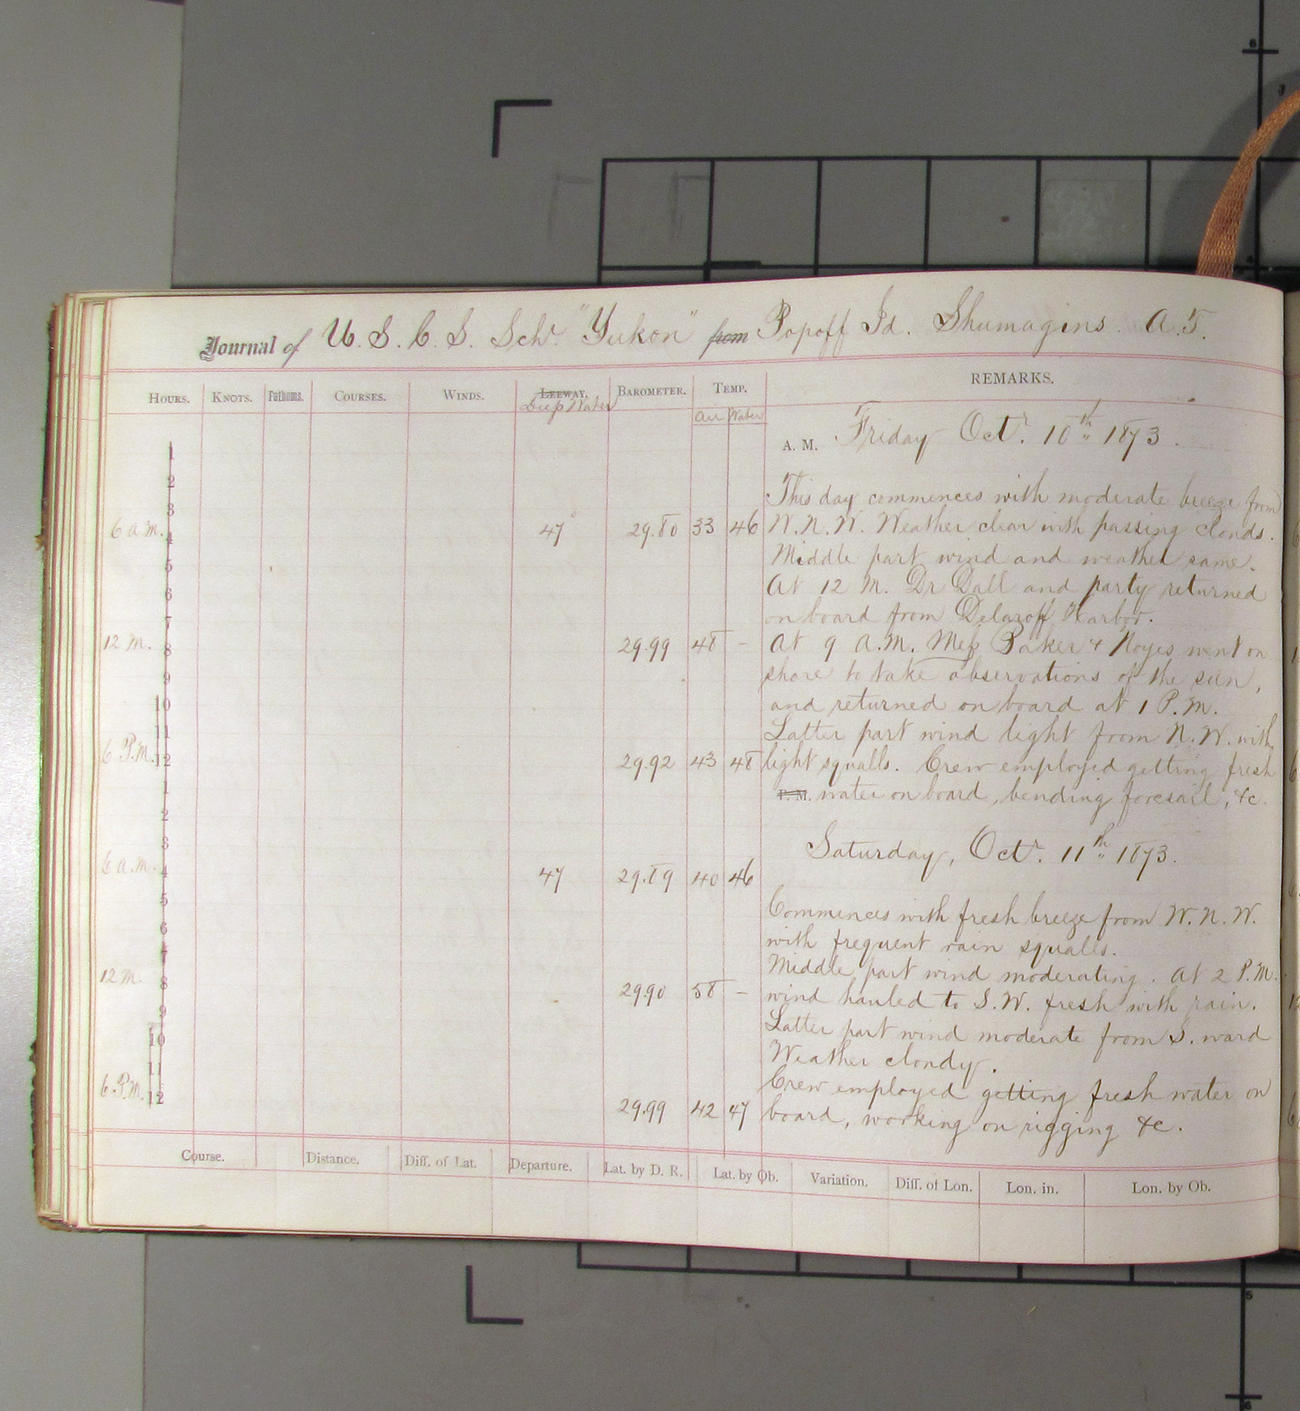 Journal of U. S. C. S. Schr. "Yukon" from Popoff Id. Shumagins. A. T.
HOURS. KNOTS. Fathoms. COURSES. WINDS. LEEWAY. BAROMETER. TEMP. REMARKS.
Deep Water Air Water
A. M. Friday Octr. 10th 1873.
1
2
This day commences with moderate breeze from
3
6 a.m. 4 47° 29.80 33 46 W.N.W. Weather clear with passing clouds.
5 Middle part wind and weather same.
6 At 12 M. Dr Dall and party returned
7 on board from Delaroff Harbor.
12 M. 8 29.99 48 - At 9 A.M. Mess Baker & Noyes went on
9 shore to take observations of the sun,
10 and returned on board at 1 P.M.
11 Latter part wind light from N.W. with
6 P.M. 12 29.92 43 48 light squalls. Crew employed getting fresh
1 P. M. water on board, bending foresail, &c.
2
3 Saturday, Octr. 11th 1873.
6 a.m. 4 47 29.89 40 46
5 Commences with fresh breeze from W.N.W.
6 with frequent rain squalls.
7 Middle part wind moderating. At 2 P.M.
12 M. 8 29.90 58 - wind hauled to S.W. fresh with rain.
9 Latter part wind moderate from S. ward
10 Weather cloudy.
11 Crew employed getting fresh water on
6 P.M. 12 29.99 42 47 board, working on rigging &c.
Course. Distance. Diff. of Lat. Departure. Lat. by D. R. Lat. by Ob. Variation. Diff. of Lon. Lon. in. Lon. by Ob.